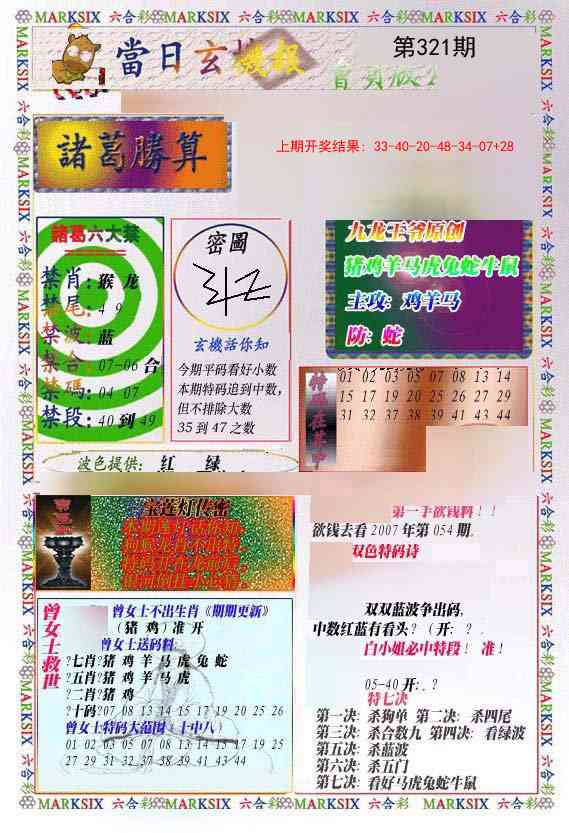 MARKSIX 六合彩 MARKSIX 六合彩 MARKSIX 六合彩 MARKSIX
當日玄机
機報
第321期
諸葛勝算
上期开奖结果：33-40-20-48-34-07+28
諸葛六大禁
禁肖：猴 龙
禁尾：4 9
禁波：蓝
禁合：07-06 合
禁碼：04-07
禁段：40 到 49
密圖
玄機話你知
今期平码看好小数
本期特码追到中数，
但不排除大数
35 到 47 之数
九龙王爷原创
猪鸡羊马虎兔蛇牛鼠
主攻：鸡羊马
防：蛇
特碼在其中
01 02 03 05 07 08 13 14
15 17 19 20 25 26 27 29
31 32 37 38 39 41 43 44
波色提供： 红 绿
宝莲灯传密
第一手欲钱料！！
欲钱去看 2007 年第 054 期。
双色特码诗
双双蓝波争出码，
中数红蓝有看头？（开：？.
白小姐必中特段！ 准！
05-40 开：？
曾女士救世
曾女士不出生肖《期期更新》
（猪 鸡）准 开
曾女士送码料
?七肖?猪 鸡 羊 马 虎 兔 蛇
?五肖?猪 鸡 羊 马 虎
?二肖?猪 鸡
?十码?07 08 13 14 15 17 19 20 25 26
曾女士特码大范围〈十中八〉
01 02 03 05 07 08 13 14 15 17 19 25
27 29 31 32 37 38 39 41 43 44
特七决
第一决：杀狗单 第二决：杀四尾
第三决：杀合数九 第四决：看绿波
第五决：杀蓝波
第六决：杀五门
第七决：看好马虎兔蛇牛鼠
MARKSIX 六合彩 MARKSIX 六合彩 MARKSIX 六合彩 MARKSIX 六合彩 MARKSIX